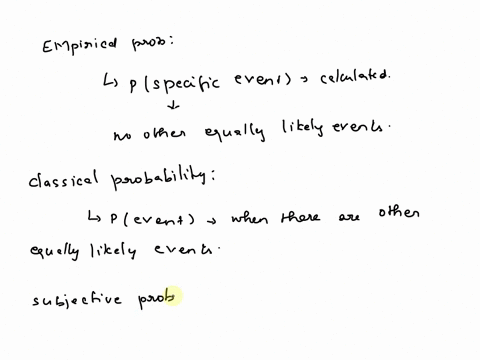 Empirical prob:
↳ P(specific event) → calculated.
↓
no other equally likely events.
classical probability:
↳ P(event) → when there are other
equally likely events.
subjective prob